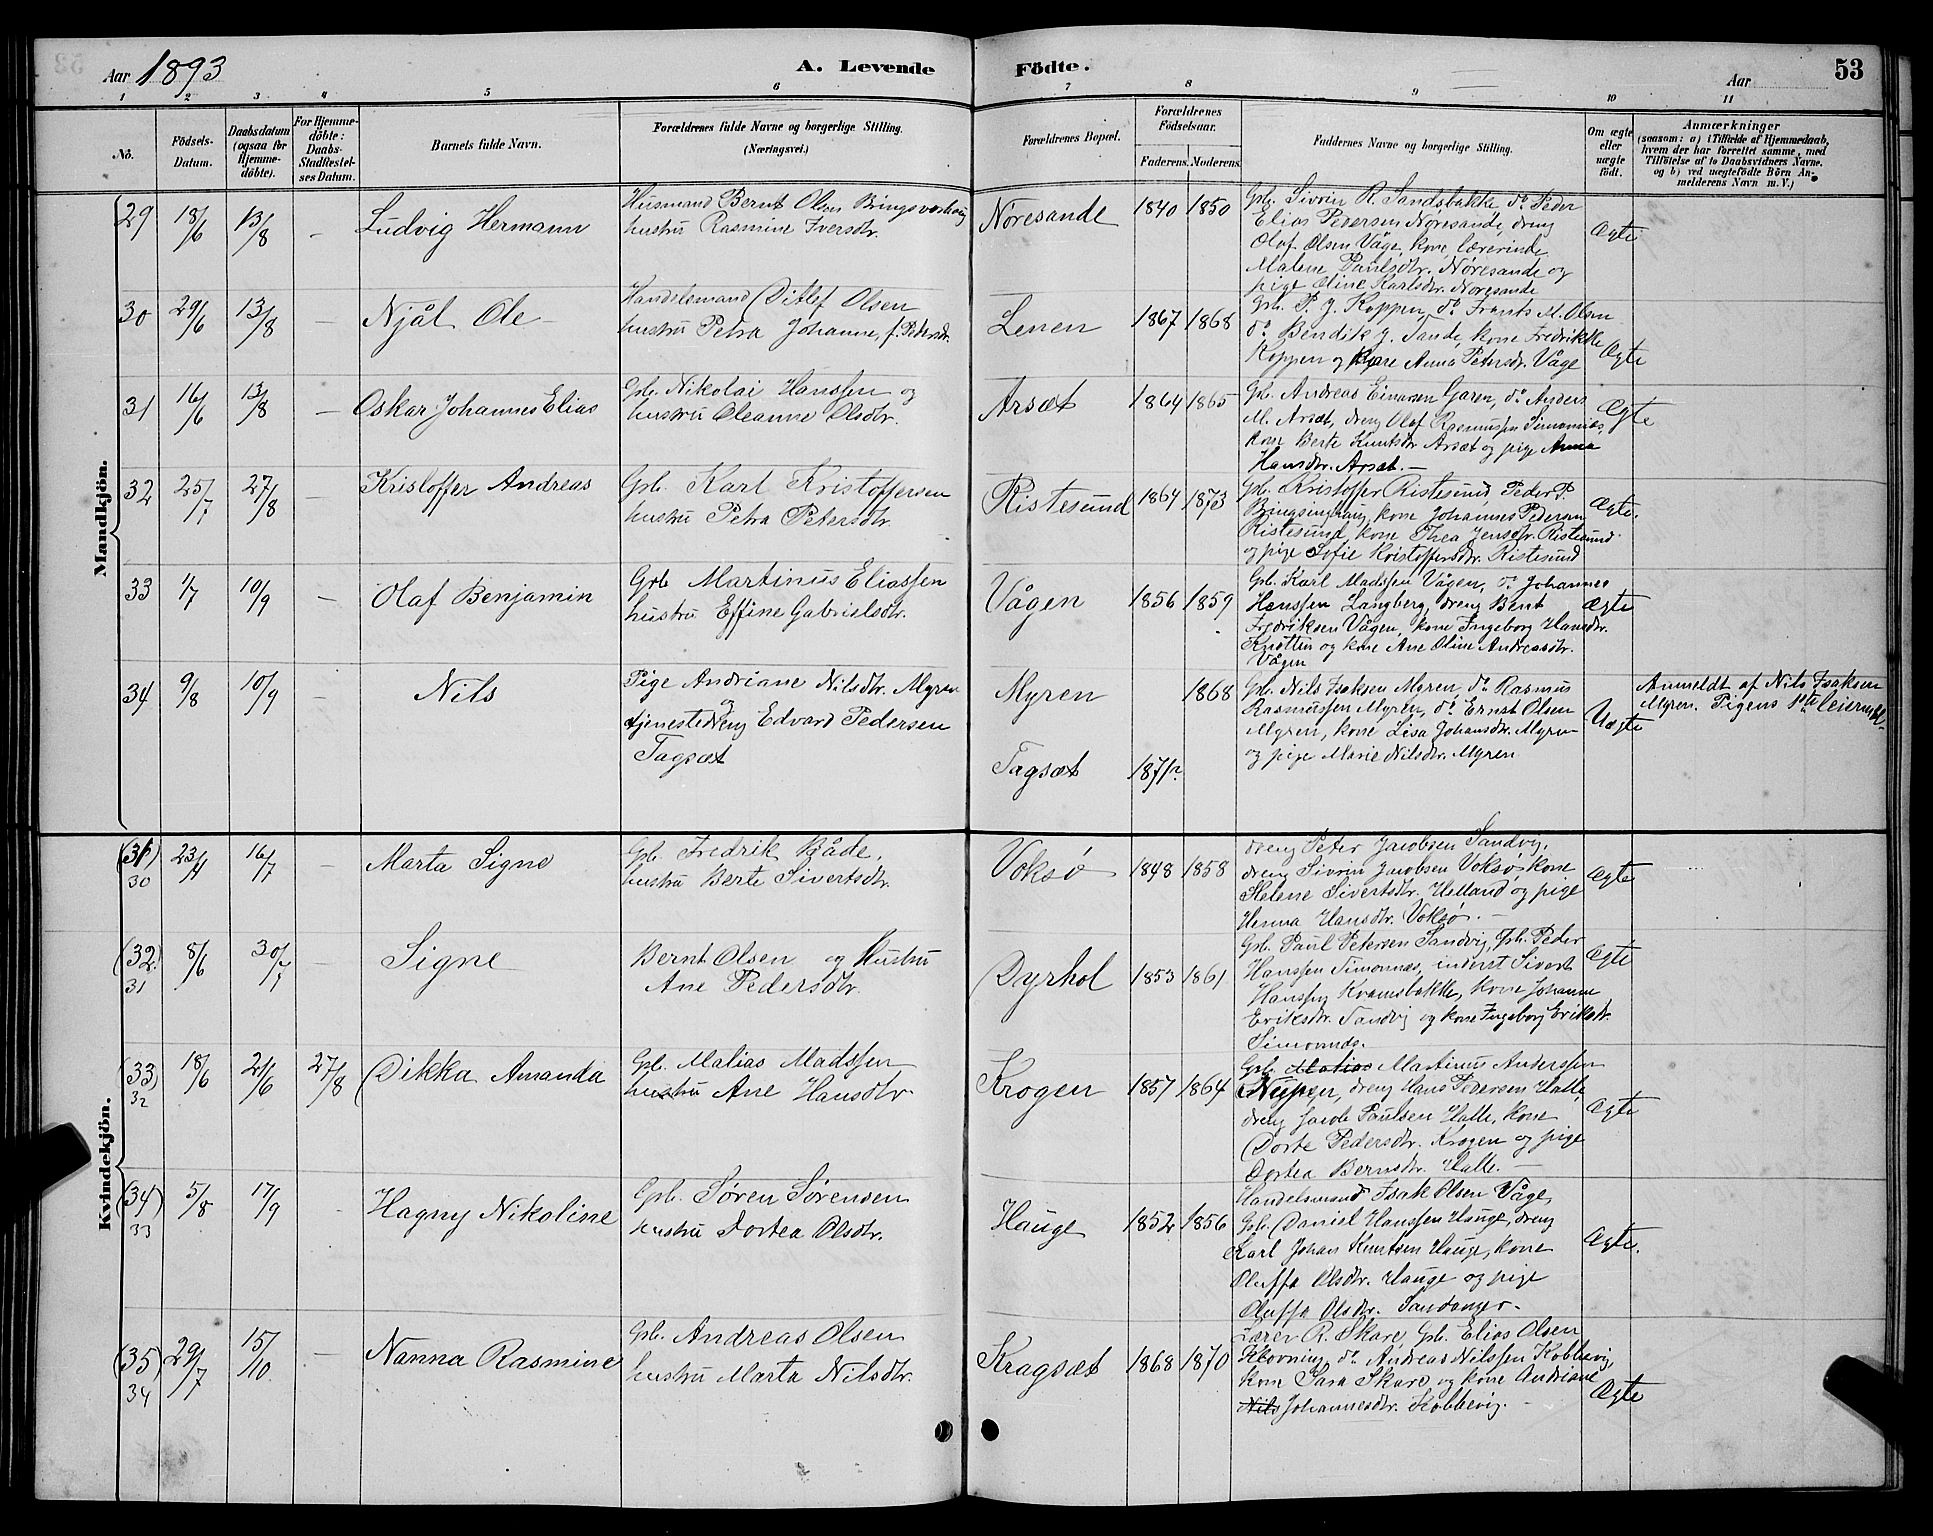 Aar 1893
A. Levende
Födte.
Aar
53
1 2 3 4 5 6 7 8 9 10 11
No.
Födsels-Datum.
Daabsdatum (ogsaa for Hjemme-döbte).
For Hjemme-döbte: Daabs-Stadfæstel-ses Datum.
Barnets fulde Navn.
Forældrenes fulde Navne og borgerlige Stilling. (Næringsvei.)
Forældrenes Bopæl.
Forældrenes Födselsaar.
Faderens. Moderens.
Faddernes Navne og borgerlige Stilling.
Om ægte eller uægte födt.
Anmærkninger
(saasom: a) i Tilfælde af Hjemmedaab, hvem der har forrettet samme, med Tilföielse af to Daabsvidners Navne. og b) ved uægtefödte Börn An-melderens Navn m. V.)
Mandkjön.
29 18/6 13/8 - Ludvig Hermann
Husmand Bernt Olsen
hustru Rasmine Iversdtr.
Nøresande 1840 1850
Gb. Sivrin R. Sandsbakke do Peder
Elias Pedersen Nøresande, dreng
Olaf Olsen Våge, kone, lærerinde
Malene Paulsdtr. Nøresande og
pige Oline Karlsdtr. Nøresande
Ægte
30 29/6 13/8 - Njål Ole -
Handelsmand Ditlef Olsen
hustru Petra Johanne, f. Petersdtr.
Lenen 1867 1868
Gb. P. J. Koppen, do Frants M. Olsen
do Bendik J. Sande, kone Fredrikke
Koppen og kone Anna Petersdtr. Våge
Ægte
31 16/6 13/8 - Oskar Johannes Elias
Gb. Nikolai Hanssen og
hustru Oleanne Olsdtr.
Arsæt 1864 1865
Gb. Andreas Einarsen Garen, do Anders
M. Arsæt, dreng Olaf Rasmussen Simonnes,
kone Berte Knutsdtr Arsæt og pige Anna
Hansdtr. Arsæt. -
Ægte
32 25/7 27/8 - Kristoffer Andreas
Gb. Karl Kristoffersen
hustru Petra Petersdtr.
Ristesund 1864 1873
Gb. Kristoffer Ristesund Peder P.
Bringsinghaug, kone Johannes Pedersen
Ristesund, kone Thea Jensdtr. Ristesund
og pige Sofie Kristoffersdtr. Ristesund
Ægte.
33 1/7 10/9 - Olaf Benjamin
Grb Martinus Eliassen
hustru Effine Gabrielsdtr.
Vågen 1856 1859
Gb. Karl Madssen Vågen, do Johannes
Hanssen Langberg, dreng Bent
Fredriksen Vågen, kone Ingeborg Hansdtr.
Knotten og kone Ane Oline Andreasdtr.
Vågen
Ægte
34 9/8 10/9 - Nils
Pige Andriane Nilsdtr. Myren
og
tjenestedreng Edvard Pedersen
Tagsæt
Myren 1868
Tagsæt 1871?
Gb. Nils Isaksen Myren, do Rasmus
Rasmussen Myren, do Ernst Olsen
Myren, kone Lisa Johansdtr. Myren
og pige Marie Nilsdtr. Myren
Uægte
Anmeldt af Nils Isaksen
Myren. Pigens 1ste leiermål
Kvindekjön.
(31) 30 23/4 16/7 - Marta Signe
Gb. Fredrik Både,
hustru Berte Sivertsdtr.
Voksø 1848 1858
dreng Peter Jacobsen Sandvig,
dreng Sivrin Jacobsen Voksø, kone
Helene Sivertsdtr. Helland og pige
Henna Hansdtr. Voksø. -
Ægte
(32) 31 8/6 30/7 - Signe
Bernt Olsen og Hustru
Ane Pedersdtr.
Dyrhol 1853 1861
Gb. Paul Petersen Sandvig, Gb. Peder
Hanssen Simonnæs, inderst Sivert
Hanssen Kvamsbakke, kone Johanne
Eriksdtr. Sandvig og kone Ingeborg Eriksdtr.
Simonnæs.
Ægte
(33) 32 18/6 21/6 27/8 Dikka Amanda
Gb. Matias Madssen
hustru Ane Hansdtr
Krogen 1857 1864
Gb. Matias Martinus Anderssen
Nupen, dreng Hans Pedersen Halle,
dreng Jacob Paulsen Halle, kone
Dorte Pedersdtr. Krogen og pige
Dortea Berntsdtr. Halle. -
Ægte
(34) 33 5/8 17/9 - Hagny Nikoline
Gb. Søren Sørensen
hustru Dortea Olsdtr.
Hauge 1852 1856
Handelsmand Isak Olsen Våge,
Gb. Daniel Hanssen Hauge, dreng
Karl Johan Knutsen Hauge, kone
Oluffa Olsdtr. Hauge og pige
Oluffa Olsdtr. Sandanger.
Ægte.
(35) 34 29/7 15/10 - Nanna Rasmine
Gb. Andreas Olsen
hustru Marta Nilsdtr.
Kragsæt 1868 1870
Lærer R. Skare, Gb. Elias Olsen
Kløvning, do Andreas Nilssen Kobbevig,
kone Sara Skare og kone Andriane
Nils Johannesdtr. Kobbevig. -
Ægte